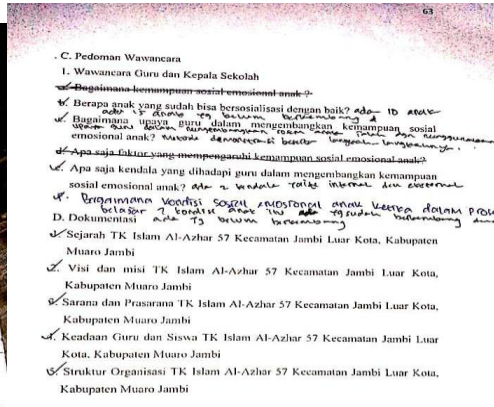 63
. C. Pedoman Wawancara
1. Wawancara Guru dan Kepala Sekolah
a. Bagaimana kemampuan sosial emosional anak ?
b. Berapa anak yang sudah bisa bersosialisasi dengan baik? ada 10 anak
ada 15 anak yg belum berkembang
c. Bagaimana upaya guru dalam mengembangkan kemampuan sosial
upaya guru dalam mengembangkan
emosional anak? Metode demonstrasi beserta langkah langkahnya.
d. Apa saja faktor yang mempengaruhi kemampuan sosial emosional anak?
e. Apa saja kendala yang dihadapi guru dalam mengembangkan kemampuan
sosial emosional anak? ada 2 kendala internal dan external
f. Bagaimana kondisi sosial emosional anak ketika dalam
belajar ? kondisi anak ini ada yg sudah berkembang
D. Dokumentasi ada yg belum berkembang
1. Sejarah TK Islam Al-Azhar 57 Kecamatan Jambi Luar Kota, Kabupaten
Muaro Jambi
2. Visi dan misi TK Islam Al-Azhar 57 Kecamatan Jambi Luar Kota,
Kabupaten Muaro Jambi
3. Sarana dan Prasarana TK Islam Al-Azhar 57 Kecamatan Jambi Luar Kota,
Kabupaten Muaro Jambi
4. Keadaan Guru dan Siswa TK Islam Al-Azhar 57 Kecamatan Jambi Luar
Kota, Kabupaten Muaro Jambi
5. Struktur Organisasi TK Islam Al-Azhar 57 Kecamatan Jambi Luar Kota,
Kabupaten Muaro Jambi